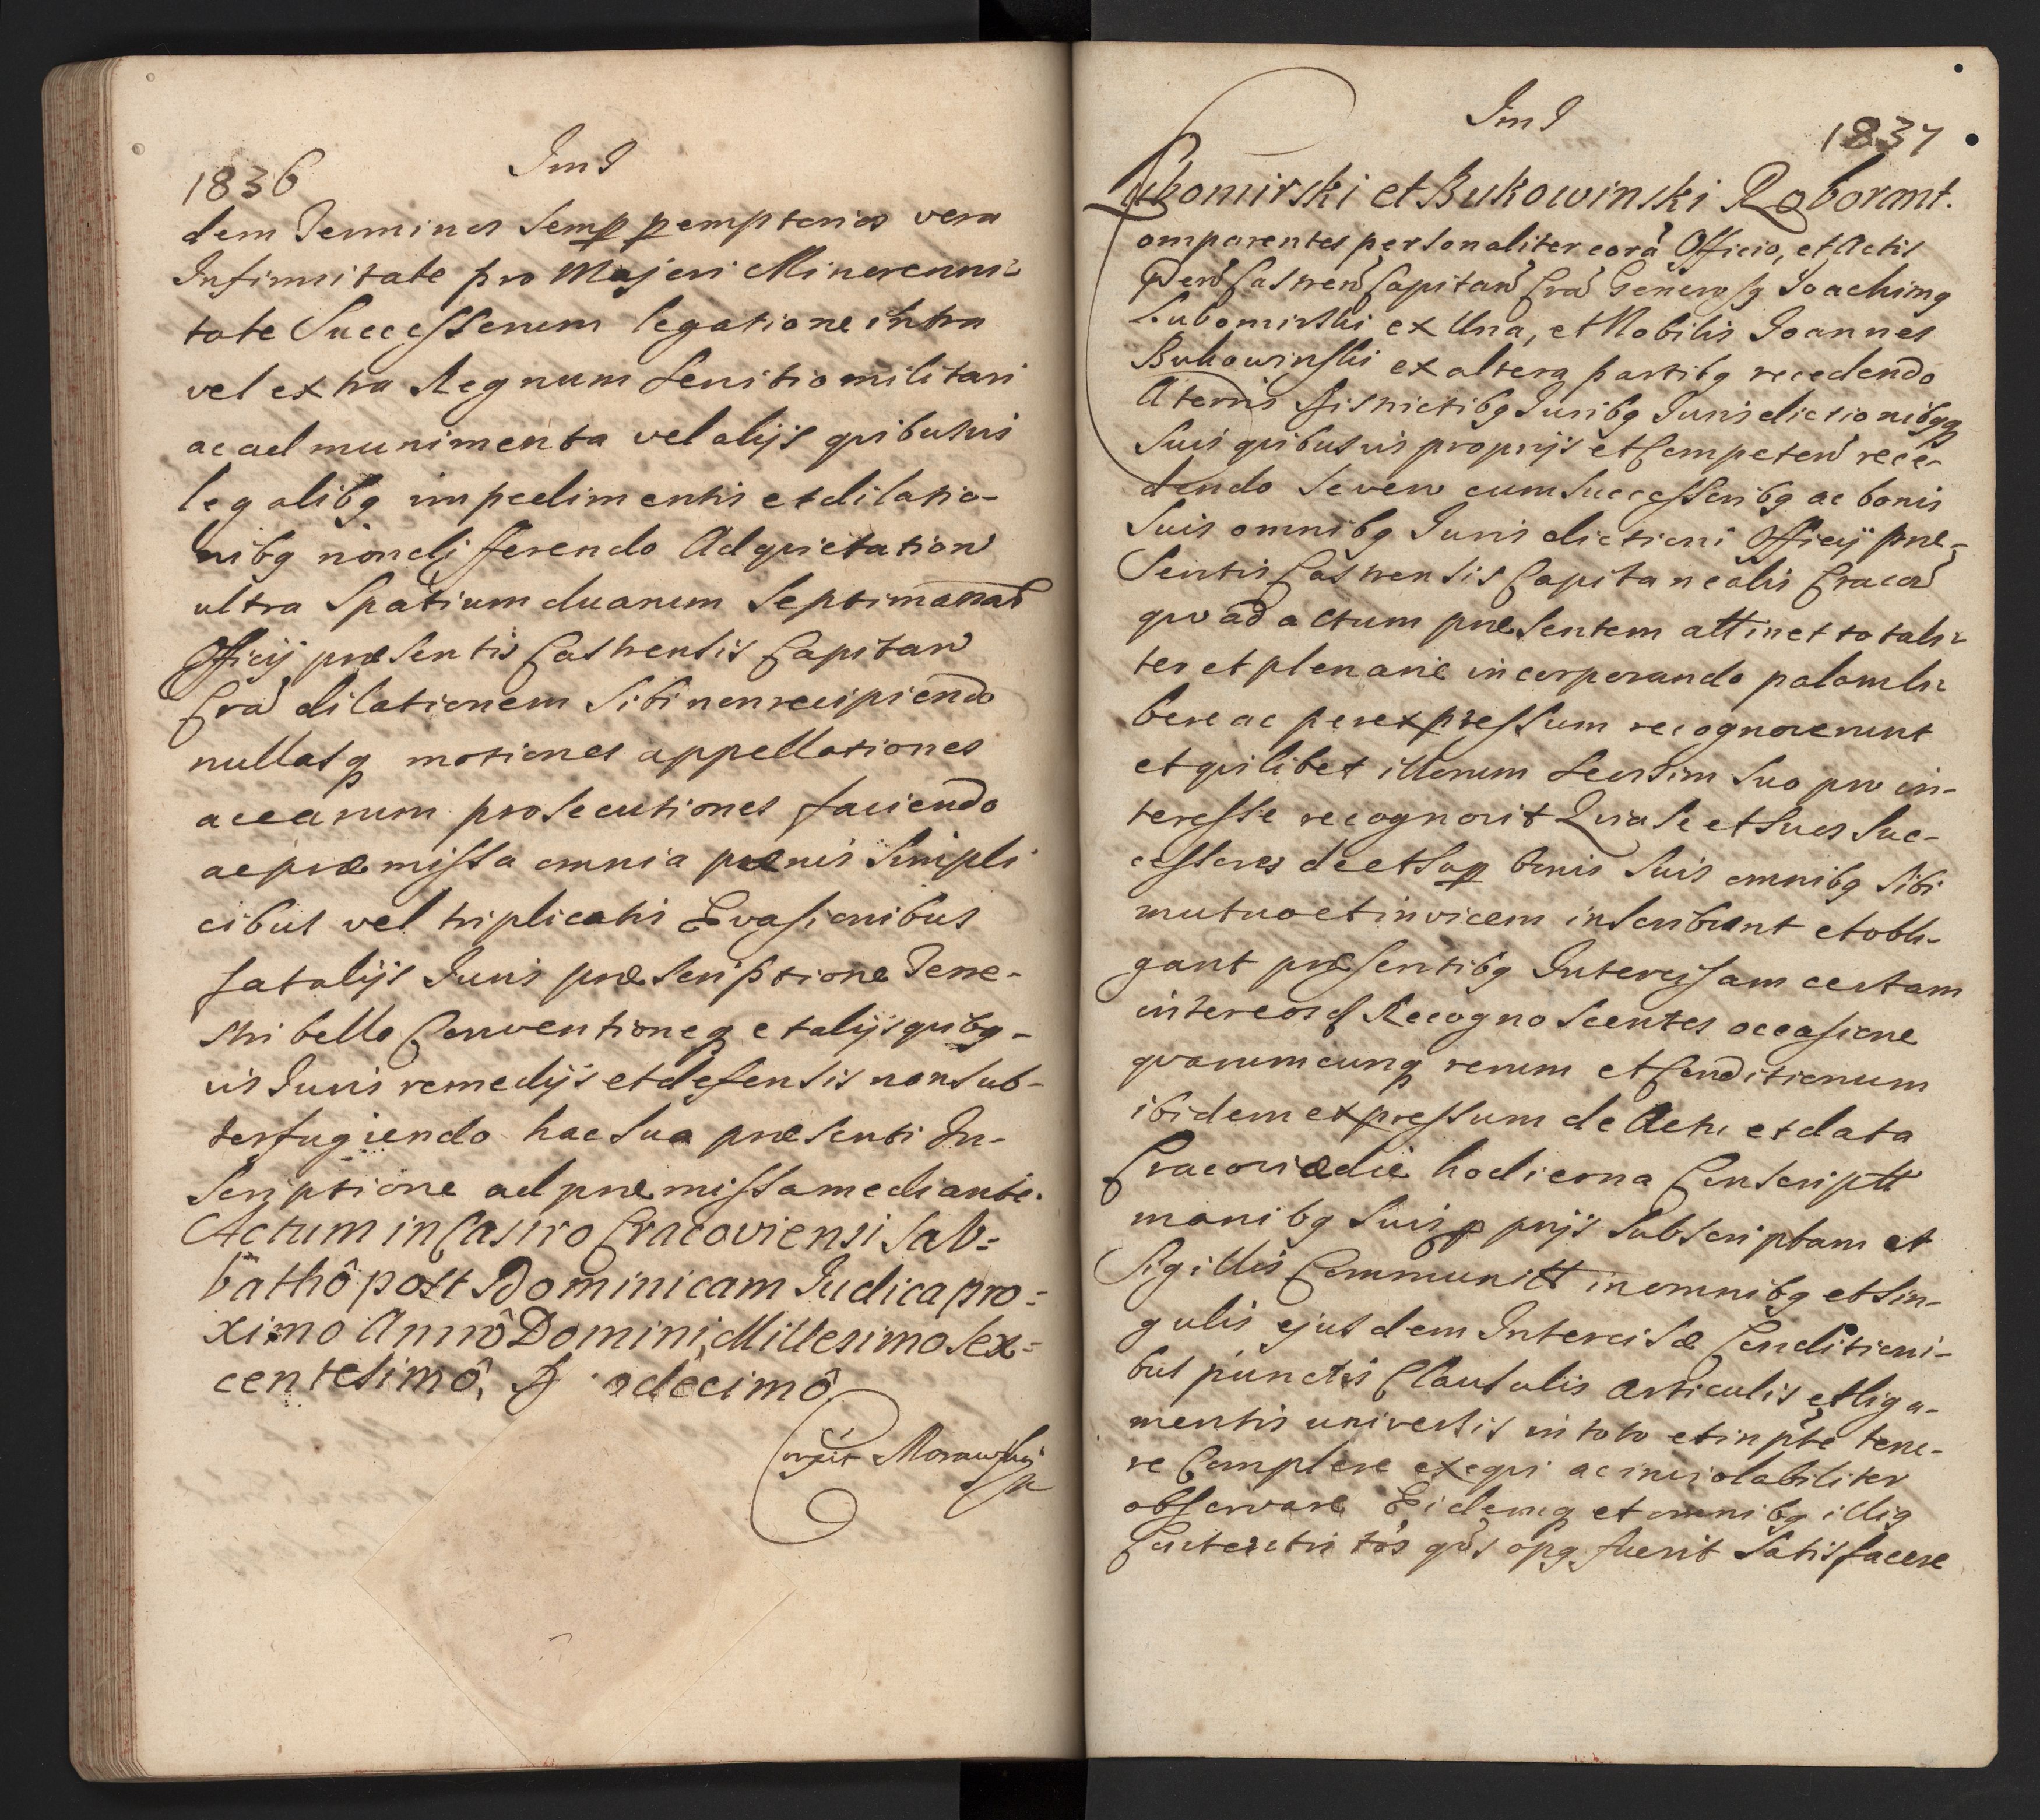 1836
ImI
dem Terminos semp pemptorios vera
Infirmitate pro Majori Minorenni-
tate Successorum legatione intra
vel extra Regnum servitio militari
ac ad munimenta vel alijs quibusvis
legalibq impedimentis et dilatio-
nibq non differendo Adquietation
ultra Spatium duarum Septimanar
Officij præsentis Castrensis Capitan
Cra dilationem sibi non recipiendo
nullasq motiones appellationes
ac earum prosecutiones faciendo
ac præmissa omnia pænis simpli
cibus vel triplicatis Evasionibus
fatalijs Iuris præscriptione Terre-
stri bello Conventioneq et alijs quibq-
vis Iuris remedijs et defensis non sub-
terfugiendo hac sua præsenti In-
scriptione ad præmissa mediante.
Actum in Castro Cracoviensi Sab=
bathô post Dominicam Iudica pro=
ximo Annô Domini, Millesimo Sex=
centesimô, odecimô
Morawski
ImI
1837
Lubomirski et Bukowinski Roborant.
omparentes personaliter corã Officio, et Actis
Pern Castren Capitan Cra Generosq Ioachimq
Lubomirski ex Una, et Nobilis Ioannes
Bukowinski ex altera partibq recedendo
A terris districtibq Iuribq Iurisdictionibqq
suis quibusvis proprijs et Competen rece-
dendo se vero cum successoribq ac bonis
suis omnibq Iurisdictioni Officij præ-
sentis Castrensis Capitanealis Cracov
quo ad actum præsentem attinet totali-
ter et plenarie incorporando palam li-
bere ac per expressum recognoverunt
et quilibet illorum seorsim suo pro in-
teresse recognovit Quia se et suos suc-
cessores de et sup bonis suis omnibq sibi
mutuo et invicem inscribunt et obli-
gant præsentibq Intercisam certam
inter eosd Recognoscentes occasione
quarumcunq rerum et Conditionum
ibidem expressum de Actu et data
Cracoviæ die hodierna Conscriptt
manibq suis pprijs subscriptam et
Sigillis Communitt in omnibq et sin-
gulis ejusdem Intercisæ Conditioni-
bus punctis Clausulis articulis et liga-
mentis universis in toto et in pte tene-
re Complere exequi ac inviolabiliter
observare Eidemq et omnibq illiq
Contentis tõs qõs opq fuerit satisfacere